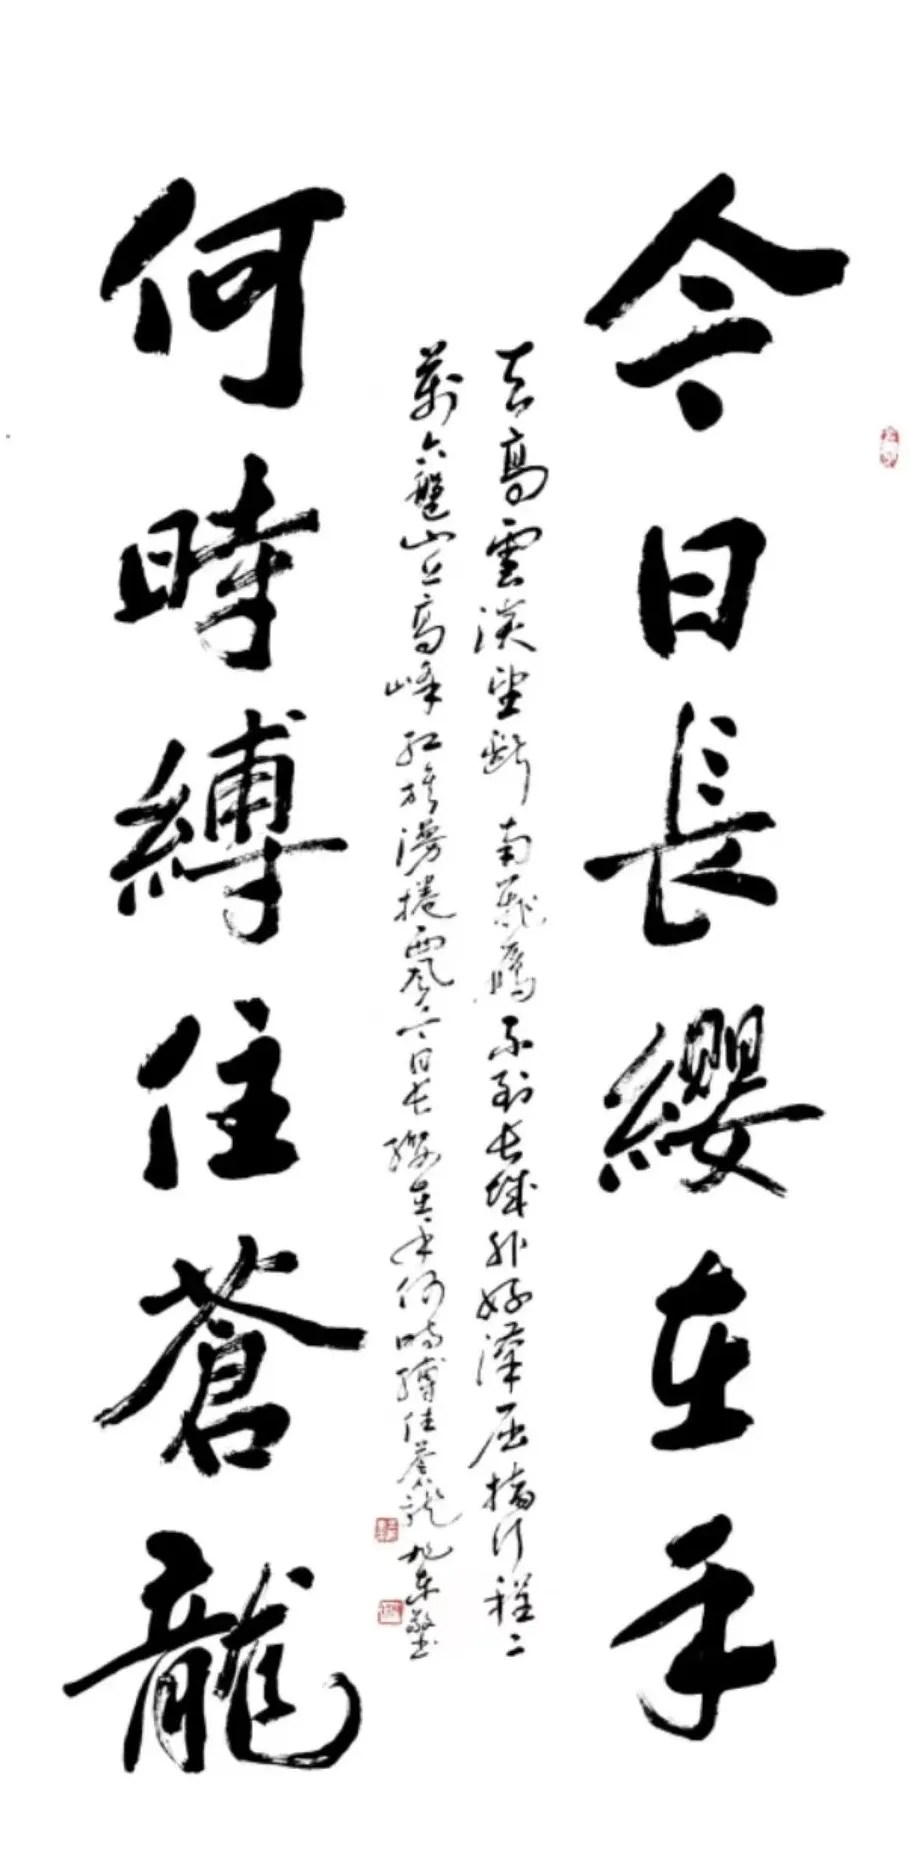 今日長纓在手
天高雲淡望斷南飛鴈不到长城非好漢屈指行程二
萬六盤山上高峰红旗漫捲西風今日长纓在手何時縛住蒼龍旭東
何時縛住蒼龍